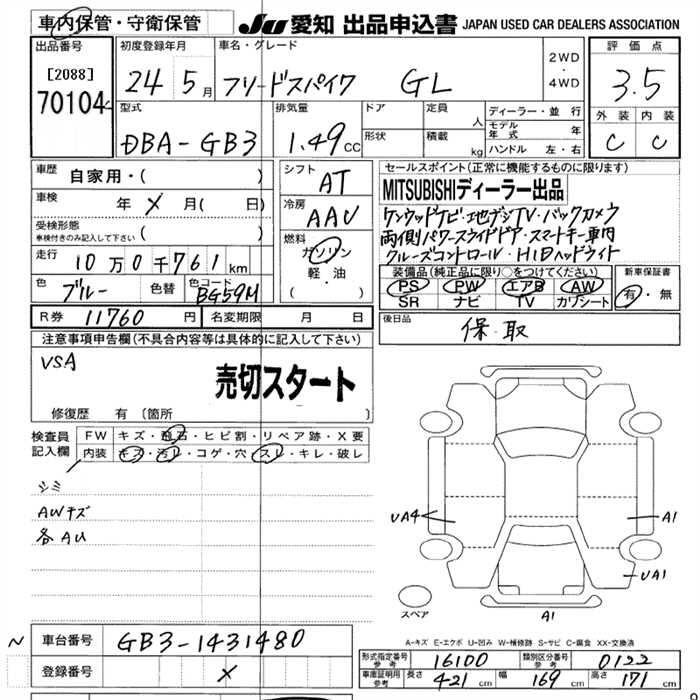 車内保管・守衛保管
JU 愛知 出品申込書 JAPAN USED CAR DEALERS ASSOCIATION
出品番号 初度登録年月 車名・グレード 評価点
[2088] 24年5月 フリードスパイク GL 2WD・4WD 3.5
70104
型式 排気量 ドア 定員 人 ディーラー・並行 外装 内装
DBA-GB3 1.49CC 形状 積載 kg モデル年式 年 C C
ハンドル 左・右
車歴 自家用・( ) シフト AT セールスポイント(正常に機能するものに限ります)
MITSUBISHIディーラー出品
車検 年 X 月( 日) 冷房 AAC ケンウッドナビ・地デジTV・バックカメラ
受検形態 車検付きのみ記入して下さい ( ) 両側パワースライドドア・スマートキー車内
燃料 ガソリン 軽・油 ( ) クルーズコントロール・HIDヘッドライト
走行 10万0千761km
装備品(純正品に限り○をつけてください) 新車保証書
色 ブルー 色替 色コード BG59M PS PW エアB AW 有・無
SR ナビ TV カワシート
R券 11760円 名変期限 月 日 後日品 保・取
注意事項申告欄(不具合内容等は具体的に記入して下さい)
VSA
売切スタート
修復歴 有 (箇所 )
検査員記入欄 FW キズ・飛石・ヒビ割・リペア跡・X要
内装 キズ・汚レ・コゲ・穴・スレ・キレ・破レ
シミ
AWキズ
各AU
UA4
A1
UA1
A1
スペア
A-キズ E-エクボ U-凹み W-補修跡 S-サビ C-腐食 XX-交換済
N 車台番号 GB3-1431480
登録番号 X
形式指定番号 参考 16100 類別区分番号 参考 0122
車庫証明用 参考 長さ 421cm 幅 169cm 高さ 171cm